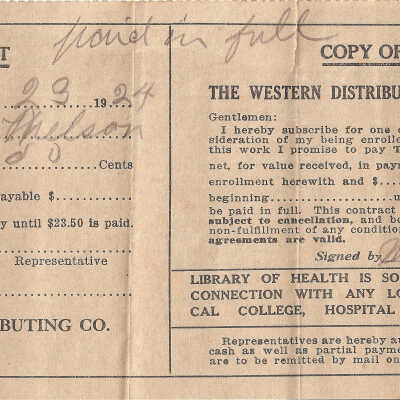 paid in full
T
23 1924
Cents
ayable $
y until $23.50 is paid.
Representative
BUTING CO.
COPY OF
THE WESTERN DISTRIBU
Gentlemen:
I hereby subscribe for one c
sideration of my being enrolle
this work I promise to pay T
net, for value received, in paym
enrollment herewith and $
beginning
be paid in full. This contract
subject to cancellation, and bo
non-fulfillment of any conditio
agreements are valid.
Signed by
LIBRARY OF HEALTH IS SO
CONNECTION WITH ANY LO
CAL COLLEGE, HOSPITAL
Representatives are hereby au
cash as well as partial payme
are to be remitted by mail on